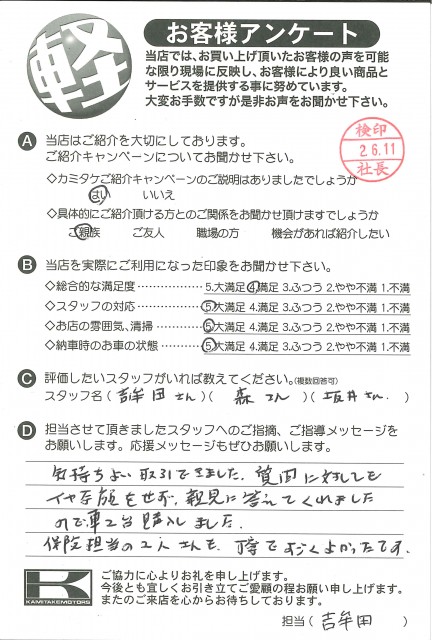 軽
お客様アンケート
当店では、お買い上げ頂いたお客様の声を可能
な限り現場に反映し、お客様により良い商品と
サービスを提供する事に努めています。
大変お手数ですが是非お声をお聞かせ下さい。
検印
26.11
社長
A 当店はご紹介を大切にしております。
ご紹介キャンペーンについてお聞かせ下さい。
◇カミタケご紹介キャンペーンのご説明はありましたでしょうか
はい いいえ
◇具体的にご紹介頂ける方とのご関係をお聞かせ頂けますでしょうか
ご親族 ご友人 職場の方 機会があれば紹介したい
B 当店を実際にご利用になった印象をお聞かせ下さい。
◇総合的な満足度 ……………… 5.大満足 4.満足 3.ふつう 2.やや不満 1.不満
◇スタッフの対応 ……………… 5.大満足 4.満足 3.ふつう 2.やや不満 1.不満
◇お店の雰囲気、清掃 ………… 5.大満足 4.満足 3.ふつう 2.やや不満 1.不満
◇納車時のお車の状態 ………… 5.大満足 4.満足 3.ふつう 2.やや不満 1.不満
C 評価したいスタッフがいれば教えてください。(複数回答可)
スタッフ名 ( 吉牟田さん )( 森さん )( 坂井さん )
D 担当させて頂きましたスタッフへのご指摘、ご指導メッセージを
お願いします。応援メッセージもぜひお願いします。
気持ちよい取引できました。質問に対しても
イヤな顔をせず、親身に答えてくれました
ので車2台購入しました。
保険担当の2人さんも、丁寧ですごくよかったです。
K
KAMITAKEMOTORS
ご協力に心よりお礼を申し上げます。
今後とも宜しくお引き立てご愛顧の程お願い申し上げます。
またのご来店を心からお待ちしております。
担当 ( 吉牟田 )